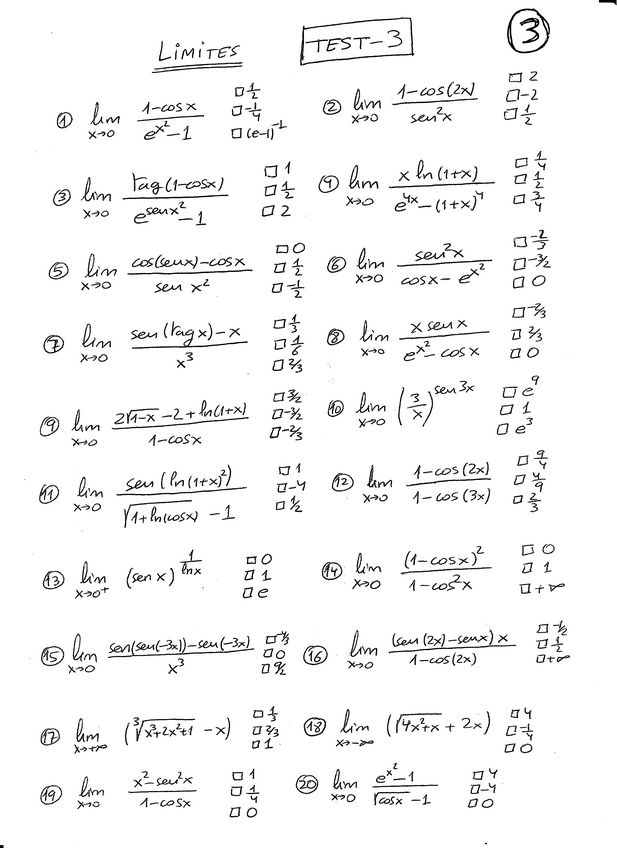 LÍMITES TEST-3 3
① lim x→0 (1-cos x)/(e^(x²)-1) □ 1/2 □ -1/4 □ (e-1)^-1
② lim x→0 (1-cos(2x))/(sen²x) □ 2 □ -2 □ 1/2
③ lim x→0 (tag(1-cosx))/(e^(senx²)-1) □ 1 □ 1/2 □ 2
④ lim x→0 (x ln(1+x))/(e^(4x)-(1+x)^4) □ 1/4 □ 1/2 □ 3/4
⑤ lim x→0 (cos(senx)-cosx)/(sen x²) □ 0 □ 1/2 □ -1/2
⑥ lim x→0 (sen²x)/(cosx-e^(x²)) □ -2/3 □ -3/2 □ 0
⑦ lim x→0 (sen(tag x)-x)/(x³) □ 1/3 □ 1/6 □ 2/3
⑧ lim x→0 (x sen x)/(e^(x²)-cosx) □ -2/3 □ 2/3 □ 0
⑨ lim x→0 (2√(1-x)-2+ln(1+x))/(1-cosx) □ 3/2 □ -3/2 □ -2/3
⑩ lim x→0 (3/x)^(sen3x) □ e^9 □ 1 □ e^3
⑪ lim x→0 (sen(ln(1+x)²))/(√(1+ln(cosx))-1) □ 1 □ -4 □ 1/2
⑫ lim x→0 (1-cos(2x))/(1-cos(3x)) □ 9/4 □ 4/9 □ 2/3
⑬ lim x→0⁺ (sen x)^(1/lnx) □ 0 □ 1 □ e
⑭ lim x→0 ((1-cosx)²)/(1-cos²x) □ 0 □ 1 □ +∞
⑮ lim x→0 (sen(sen(-3x))-sen(-3x))/(x³) □ 0 □ 9/2
⑯ lim x→0 ((sen(2x)-senx)x)/(1-cos(2x)) □ -1/2 □ 1/2 □ +∞
⑰ lim x→+∞ (∛(x³+2x²+1) -x) □ 1/3 □ 2/3 □ 1
⑱ lim x→-∞ (√(4x²+x) + 2x) □ 4 □ -1/4 □ 0
⑲ lim x→0 (x²-sen²x)/(1-cosx) □ 1 □ 1/4 □ 0
⑳ lim x→0 (e^(x²)-1)/(√cosx -1) □ 4 □ -4 □ 0